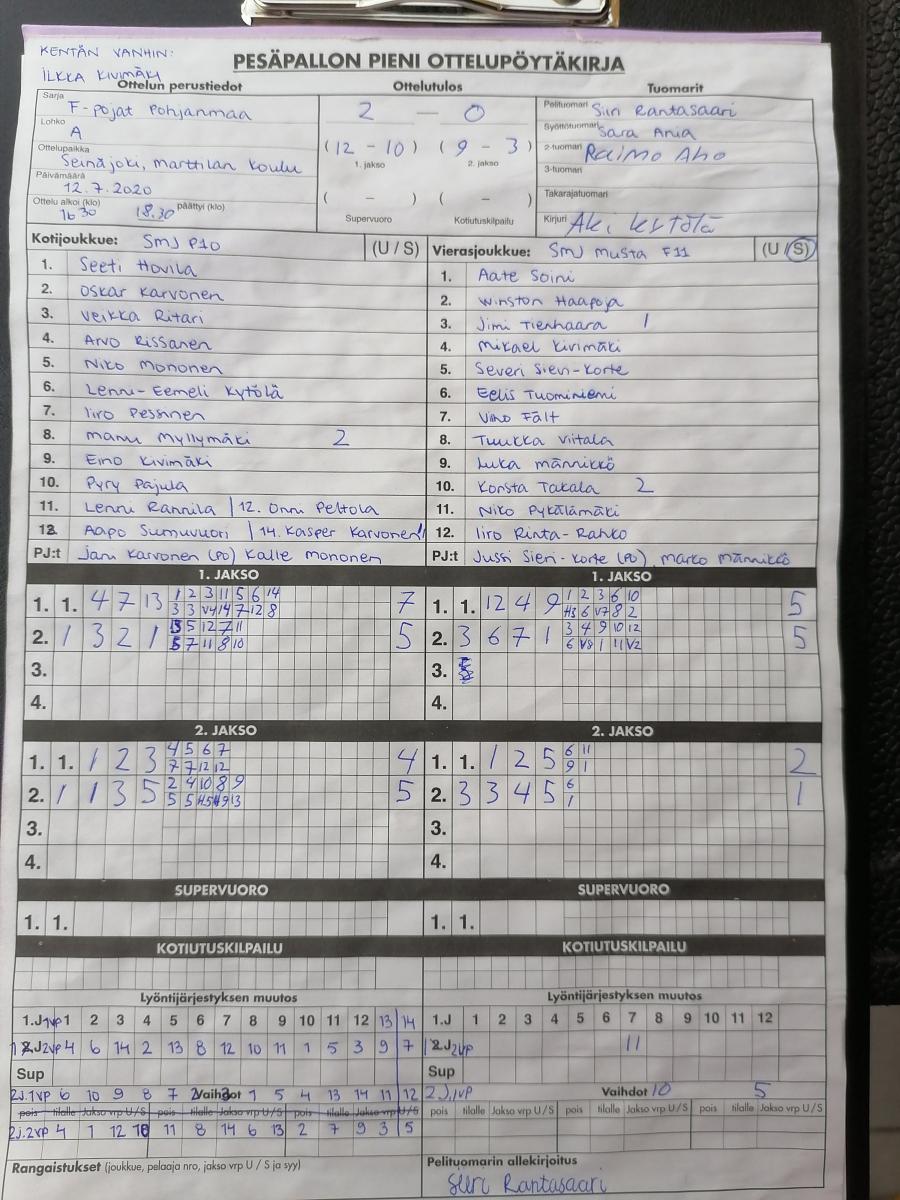 KENTÄN VANHIN:
ILKKA KIVIMÄKI
PESÄPALLON PIENI OTTELUPÖYTÄKIRJA
Ottelun perustiedot
Sarja F-pojat Pohjanmaa
Lohko A
Ottelupaikka Seinäjoki, Marttilan koulu
Päivämäärä 12.7.2020
Ottelu alkoi (klo) 16 30 18.30 päättyi (klo)
Ottelutulos
2 — 0
(12 - 10) (9 - 3)
1. jakso 2. jakso
( - ) ( - )
Supervuoro Kotiutuskilpailu
Tuomarit
Pelituomari Siiri Rantasaari
Syöttötuomari Sara Ania
2-tuomari Raimo Aho
3-tuomari
Takarajatuomari
Kirjuri Aki Kytölä
Kotijoukkue: SMJ P10 (U / S)
1. Seeti Hovila
2. Oskar Karvonen
3. Veikka Ritari
4. Arvo Rissanen
5. Niko Mononen
6. Lenni-Eemeli Kytölä
7. Iiro Pessinen
8. Manu Myllymäki 2
9. Eino Kivimäki
10. Pyry Pajula
11. Lenni Rannila | 12. Onni Peltola
13. Aapo Sumuvuori | 14. Kasper Karvonen
PJ:t Jani Karvonen (PO) Kalle Mononen
Vierasjoukkue: SMJ Musta F11 (U / S)
1. Aate Soini
2. Winston Haapoja
3. Jimi Tienhaara 1
4. Mikael Kivimäki
5. Severi Sieri-Korte
6. Eelis Tuominiemi
7. Väinö Fält
8. Tuukka Viitala
9. Luka Männikkö
10. Konsta Takala 2
11. Niko Pykälämäki
12. Iiro Rinta-Rahko
PJ:t Jussi Sieri-Korte (PO), Marko Männikkö
1. JAKSO
1. 1. 4 7 13 1 2 3 11 5 6 14 7
2. 1 3 2 1 5
3.
4.
1. JAKSO
1. 1. 12 4 9 1 2 3 6 10 5
2. 3 6 7 1 3 4 9 10 12 5
6 V8 1 11 V2
3.
4.
2. JAKSO
1. 1. 1 2 3 4 5 6 7 4
7 7 12 12
2. 1 1 3 5 2 4 10 8 9 5
3.
4.
2. JAKSO
1. 1. 1 2 5 6 11 2
9 1
2. 3 3 4 5 6 1
1
3.
4.
SUPERVUORO
1. 1.
SUPERVUORO
1. 1.
KOTIUTUSKILPAILU
KOTIUTUSKILPAILU
Lyöntijärjestyksen muutos
1.J 1VP 1 2 3 4 5 6 7 8 9 10 11 12 13 14
2.J 2VP 4 6 14 2 13 8 12 10 11 1 5 3 9 7
Sup
2J.1VP 6 10 9 8 7 2 Vaihdot 3 1 5 4 13 14 11 12
pois tilalle Jakso vrp U / S pois tilalle Jakso vrp U / S pois tilalle Jakso vrp U / S
2J.2VP 4 1 12 10 11 8 14 6 13 2 7 9 3 5
Rangaistukset (joukkue, pelaaja nro, jakso vrp U / S ja syy)
Lyöntijärjestyksen muutos
1.J 1 2 3 4 5 6 7 8 9 10 11 12
2.J 2VP 11
Sup
2.J,1VP Vaihdot 10 5
pois tilalle Jakso vrp U / S pois tilalle Jakso vrp U / S pois tilalle Jakso vrp U / S
Pelituomarin allekirjoitus
Siiri Rantasaari